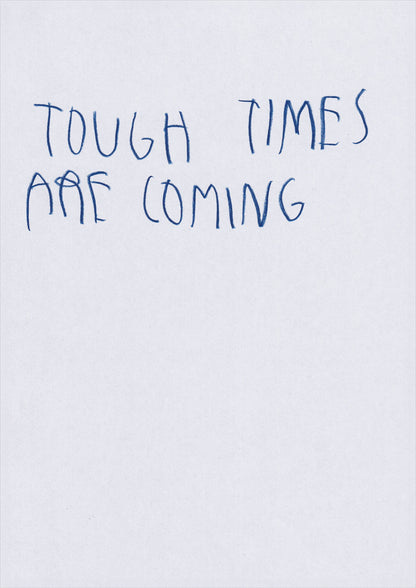 TOUGH TIMES
ARE COMING